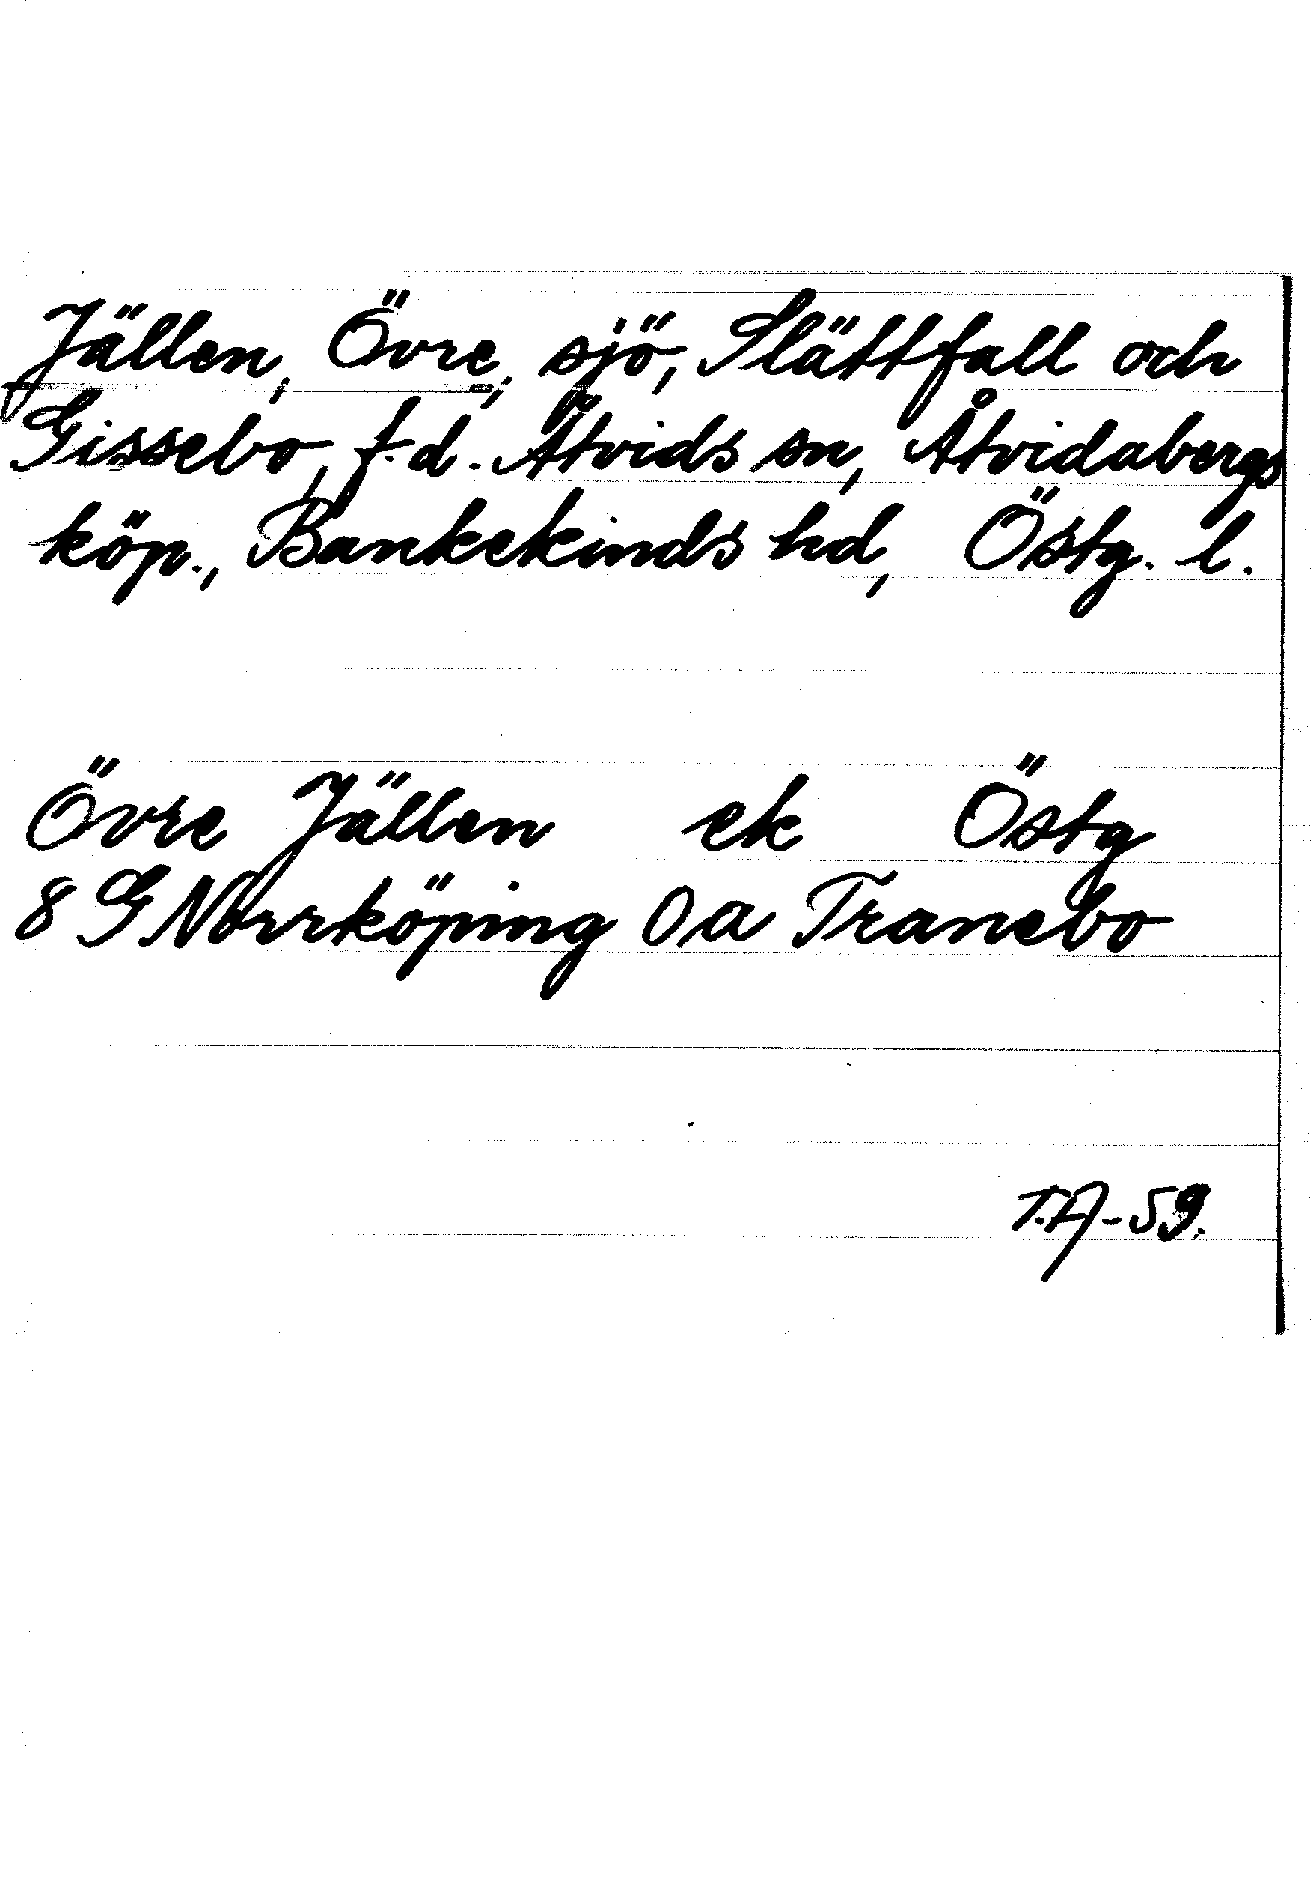 Jällen, Övre, sjö, Slättfall och
Gissebo, f.d. Åtvids sn, Åtvidabergs
köp., Bankekinds hd, Östg. l.
Övre Jällen ek Östg
8 G Norrköping 0 a Tranebo
T.A-59.